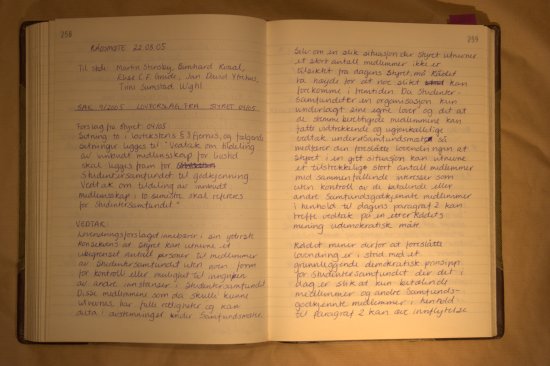 258
RÅDSMØTE 22.08.05
Til stede: Martin Bernhard
Else C.F. Jan David
Tini Sunstad
SAK 9/2005 LOVFORSLAG FRA STYRET 04/05
Forslag fra styret 04/05
til lovtekstens § 3 fjernes, og følgende
legges til "Vedtak om tildeling
av innbudt medlemskap for livstid
skal legges fram for
Studentersamfundet til godkjenning.
Vedtak om tildeling av innbudt
medlemskap i 10 semestre skal refereres
for Studentersamfundet."
VEDTAK:
Lovendringsforslaget innebærer i sin ytterste
konsekvens at Styret kan utnevne et
ubegrenset antall personer til medlemmer
av Studentersamfundet uten noen form
for kontroll eller mulighet til inngripen
av andre instanser i Studentersamfundet.
Disse medlemmene som da skulle kunne
utnevnes har fulle rettigheter og kan
delta i avstemninger under Samfundsmøter.
259
Selv om en slik situasjon der Styret utnevner
et stort antall medlemmer ikke er
tilsiktet fra dagens Styret, må Rådet
ta høyde for at noe slikt kan
forekomme i fremtiden. Da Studenter-
Samfundet er en organisasjon kun
underlagt sine egne lover og det at
de stemmeberettigede medlemmene kan
fatte vidtrekkende og ugjenkallelige
vedtak under Samfundsmøter så
medfører den foreslåtte lovendringen at
Styret i en gitt situasjon kan utnevne
et tilstrekkelig stort antall medlemmer
med sammenfallende interesser som
uten kontroll av de betalende eller
andre Samfundsgodkjente medlemmer
i henhold til dagens paragraf 2 kan
treffe vedtak på en etter Rådets
mening udemokratisk måte.
Rådet mener derfor at foreslåtte
lovendring er i strid med et
grunnleggende demokratisk prinsipp
for Studentersamfundet der det i
dag er slik at kun betalende
medlemmer og andre Samfunds-
godkjente medlemmer i henhold
til paragraf 2 kan øve innflytelse